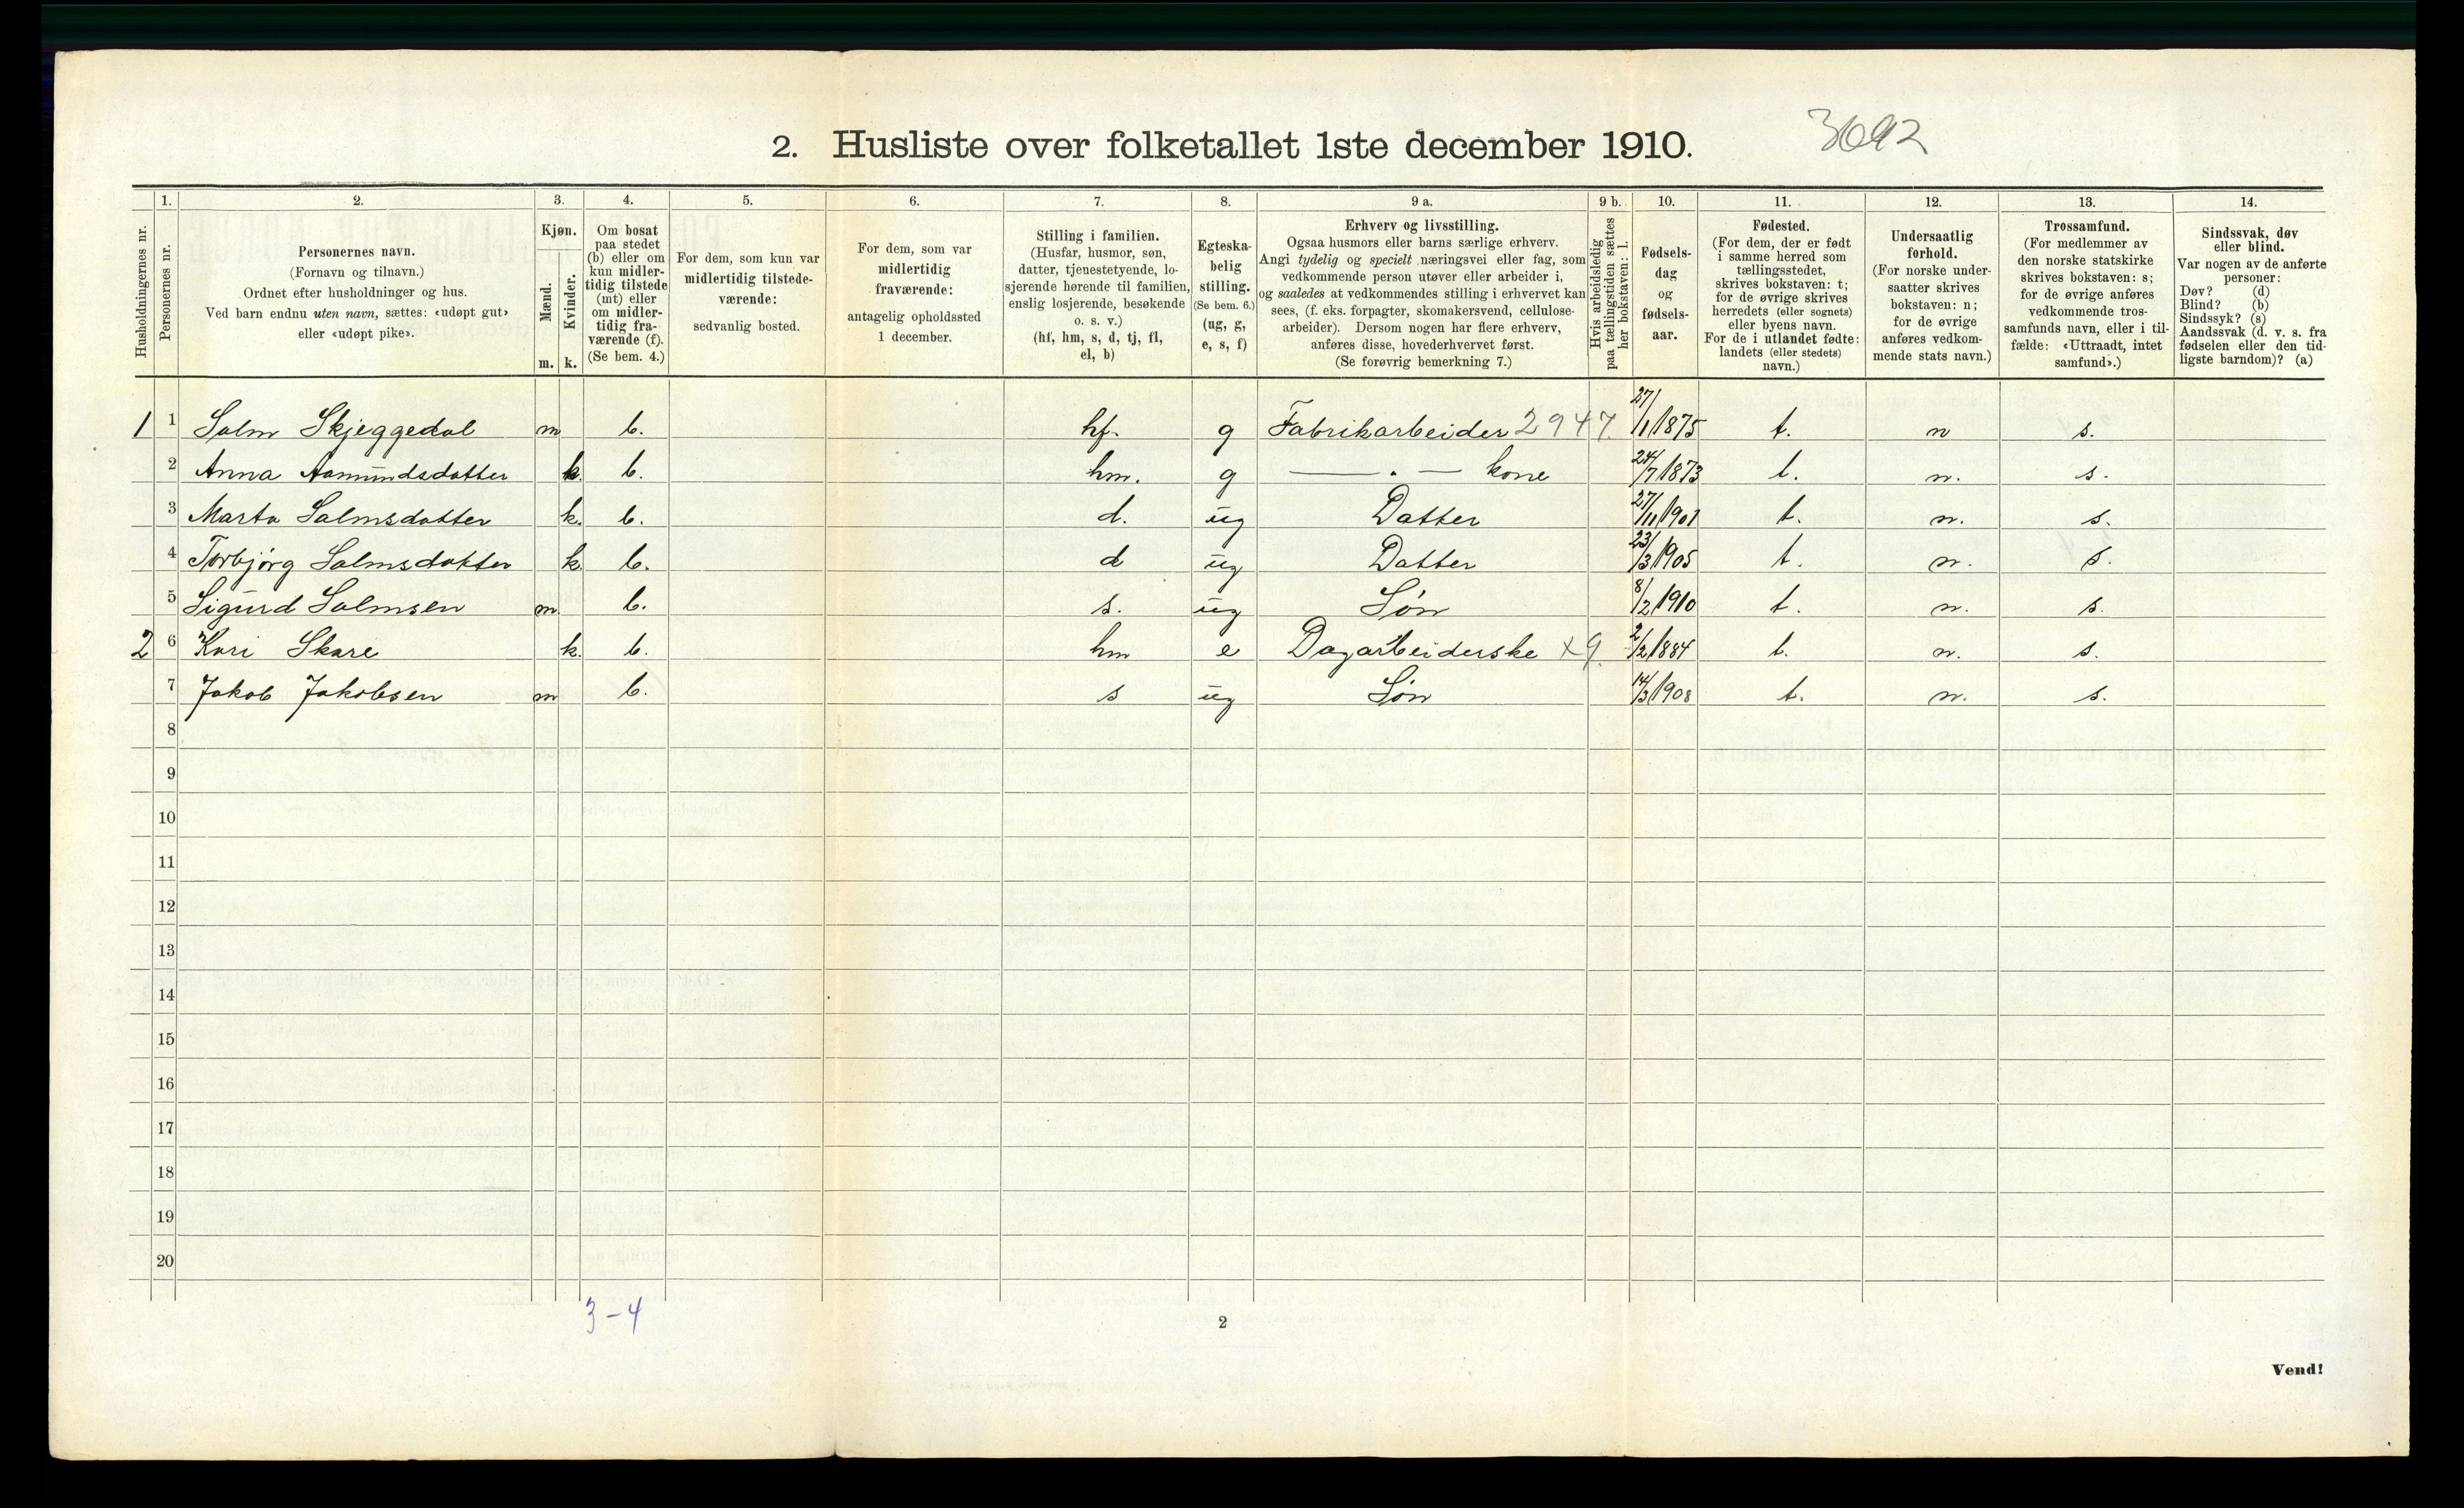 2. Husliste over folketallet 1ste december 1910. 3692
Husholdningernes nr.
1. Personernes nr.
2. Personernes navn. (Fornavn og tilnavn.) Ordnet efter husholdninger og hus. Ved barn endnu uten navn, sættes: «udøpt gut» eller «udøpt pike».
3. Kjøn. Mænd. m. Kvinder. k.
4. Om bosat paa stedet (b) eller om kun midlertidig tilstede (mt) eller om midlertidig fraværende (f). (Se bem. 4.)
5. For dem, som kun var midlertidig tilstedeværende: sedvanlig bosted.
6. For dem, som var midlertidig fraværende: antagelig opholdssted 1 december.
7. Stilling i familien. (Husfar, husmor, søn, datter, tjenestetyende, losjerende hørende til familien, enslig losjerende, besøkende o. s. v.) (hf, hm, s, d, tj, fl, el, b)
8. Egteskabelig stilling. (Se bem. 6.) (ug, g, e, s, f)
9 a. Erhverv og livsstilling. Ogsaa husmors eller barns særlige erhverv. Angi tydelig og specielt næringsvei eller fag, som vedkommende person utøver eller arbeider i, og saaledes at vedkommendes stilling i erhvervet kan sees, (f. eks. forpagter, skomakersvend, cellulosearbeider). Dersom nogen har flere erhverv, anføres disse, hovederhvervet først. (Se forøvrig bemerkning 7.)
9 b. Hvis arbeidsledig paa tællingstiden sættes her bokstaven: l.
10. Fødselsdag og fødselsaar.
11. Fødested. (For dem, der er født i samme herred som tællingsstedet, skrives bokstaven: t; for de øvrige skrives herredets (eller sognets) eller byens navn. For de i utlandet fødte: landets (eller stedets) navn.)
12. Undersaatlig forhold. (For norske undersaatter skrives bokstaven: n; for de øvrige anføres vedkommende stats navn.)
13. Trossamfund. (For medlemmer av den norske statskirke skrives bokstaven: s; for de øvrige anføres vedkommende trossamfunds navn, eller i tilfælde: «Uttraadt, intet samfund».)
14. Sindssvak, døv eller blind. Var nogen av de anførte personer: Døv? (d) Blind? (b) Sindssyk? (s) Aandssvak (d. v. s. fra fødselen eller den tidligste barndom)? (a)
1 1 Salm Skjeggedal m b. hf. g Fabrikarbeider 2947. 27/1 1875 t. n s.
2 Anna Aamundsdatter k. b. hm. g — . — kone 24/7 1873 t. n. s.
3 Marta Salmsdatter k. b. d. ug Datter 27/11 1901 t. n. s.
4 Torbjørg Salmsdatter k. b. d ug Datter 23/3 1905 t. n. s.
5 Sigurd Salmsen m. b. s. ug Søn 8/2 1910 t. n. s.
2 6 Kari Skare k. b. hm e Dagarbeiderske x9. 2/2 1884 t. n. s.
7 Jakob Jakobsen m b. s ug Søn 14/3 1908 t. n. s.
8
9
10
11
12
13
14
15
16
17
18
19
20
3-4
2
Vend!